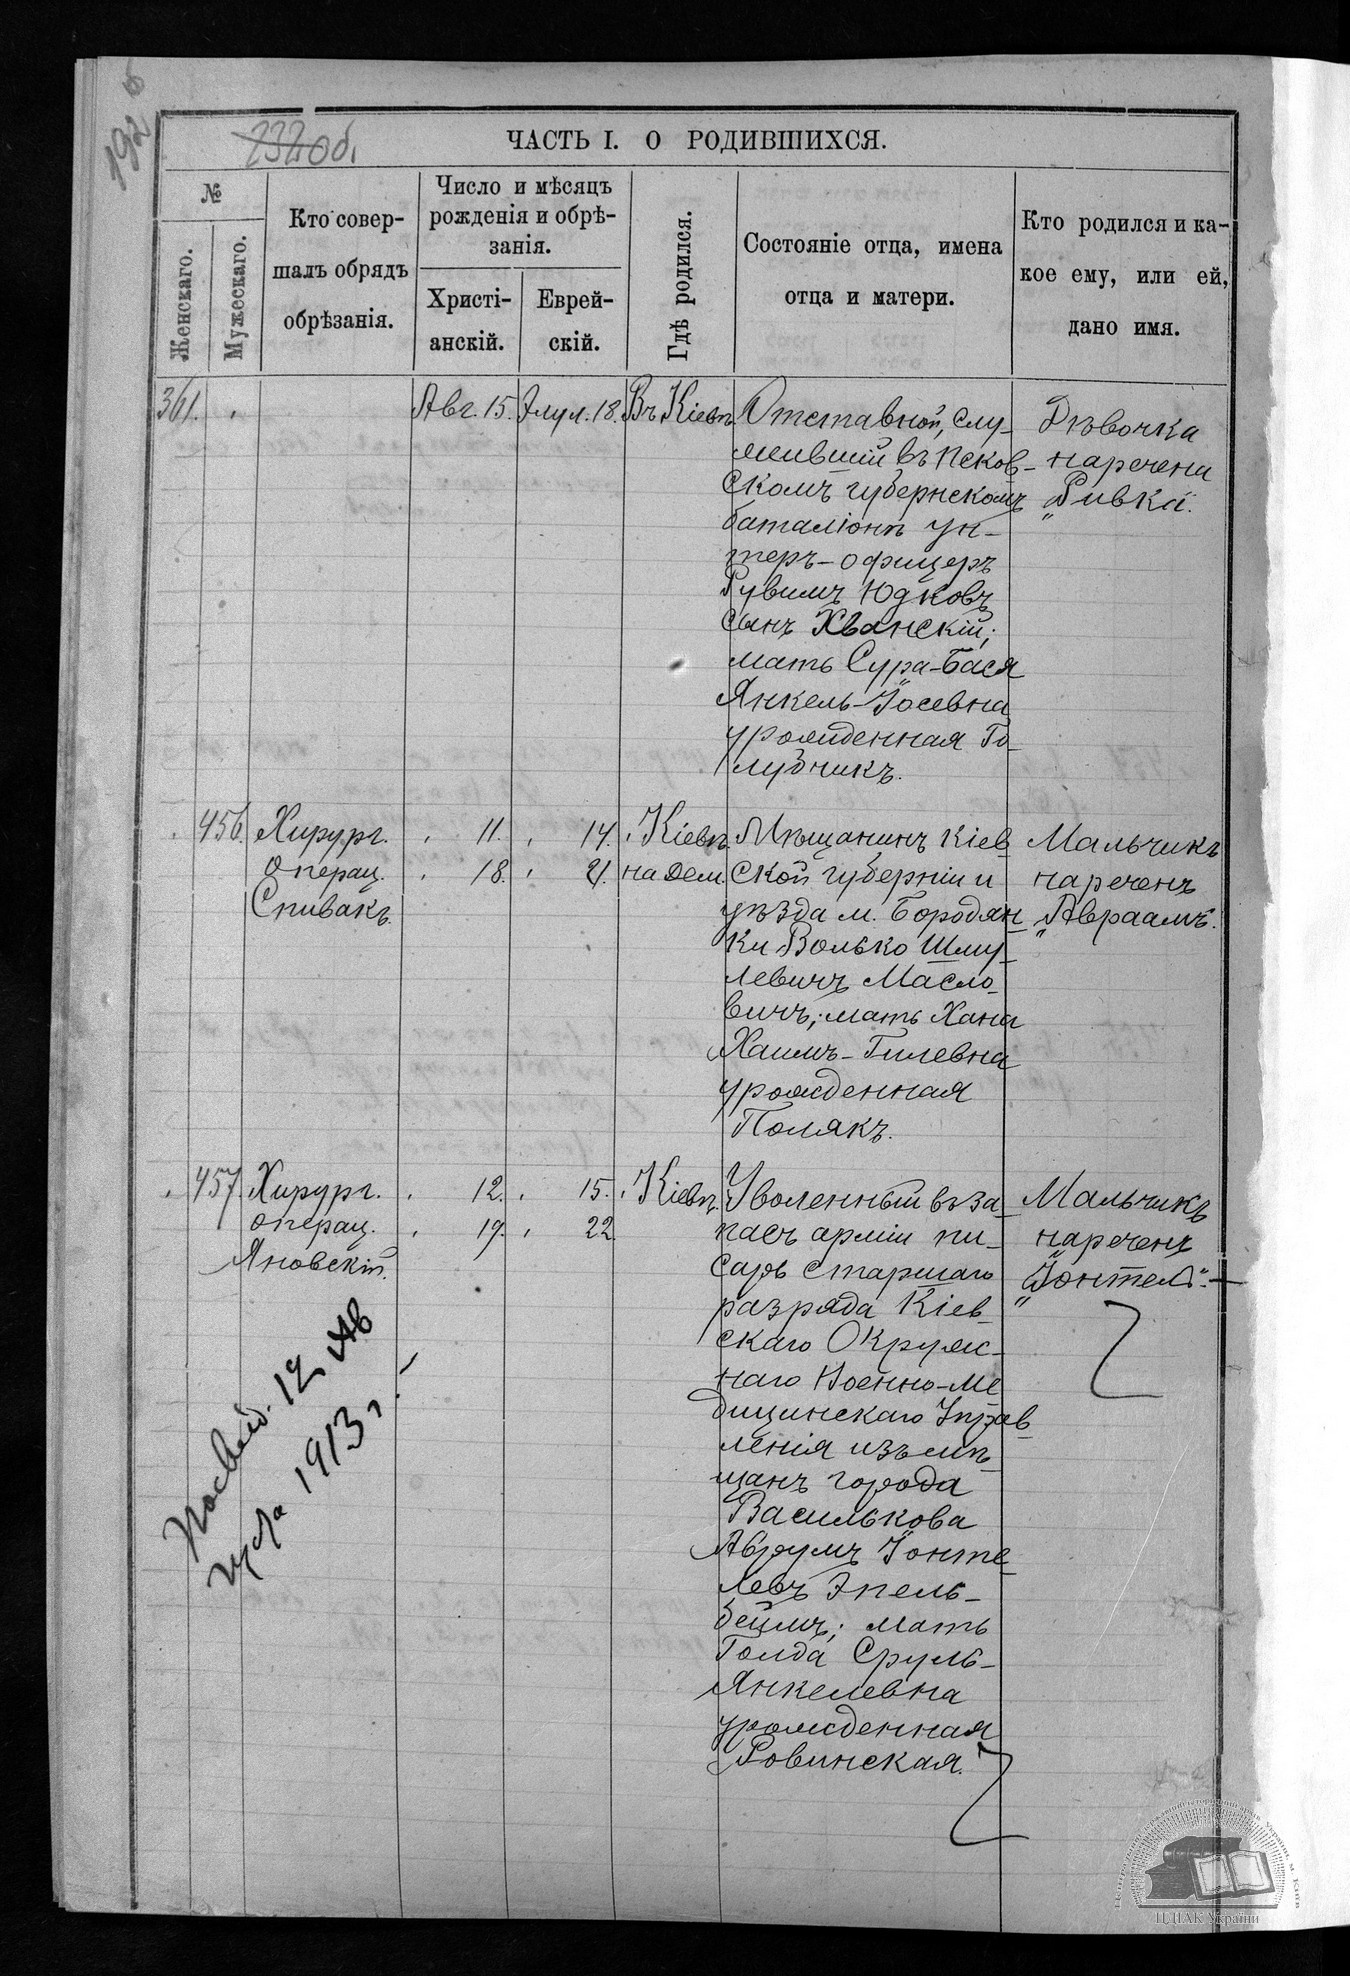 192
232 об.
ЧАСТЬ I. О РОДИВШИХСЯ.
№
Женскаго.
Мужескаго.
Кто совер-
шалъ обрядъ
обрѣзанія.
Число и мѣсяцъ
рожденія и обрѣ-
занія.
Христі-
анскій.
Еврей-
скій.
Гдѣ родился.
Состояніе отца, имена
отца и матери.
Кто родился и ка-
кое ему, или ей,
дано имя.
361.
Авг. 15.
Элул. 18.
Въ Кіевѣ.
Отставной, слу-
жившій въ Псков-
скомъ губернскомъ
баталіонѣ ун-
теръ-офицеръ
Рувимъ Юдковъ
сынъ Хванскій;
мать Сура-Бася
Янкель-Іосевна
урожденная Го-
лубчикъ.
Дѣвочка
наречена
„Ривка“.
456.
Хирург.
операц.
Спивакъ.
11.
18.
14.
21.
Кіевѣ
на Дем.
Мѣщанинъ Кіев-
ской губерніи и
уѣзда м. Бородян-
ки Волько Шму-
левичъ Масло-
вичъ; мать Хана
Хаимъ-Гилевна
урожденная
Полякъ.
Мальчикъ
нареченъ
„Авраамъ“.
457.
Хирург.
операц.
Яновскій.
12.
19.
15.
22.
Кіевѣ.
Уволенный въ за-
пасъ арміи пи-
сарь старшаго
разряда Кіев-
скаго Окруж-
наго Военно-Ме
дицинскаго Управ-
ленія изъ мѣ-
щанъ города
Василькова
Аврумъ Іонте-
левъ Эпель-
беймъ; мать
Голда Сруль-
Янкелевна
урожденная
Ровинская.
Мальчикъ
нареченъ
„Іонтель“.
12
1913 г.
ЦДІАК України